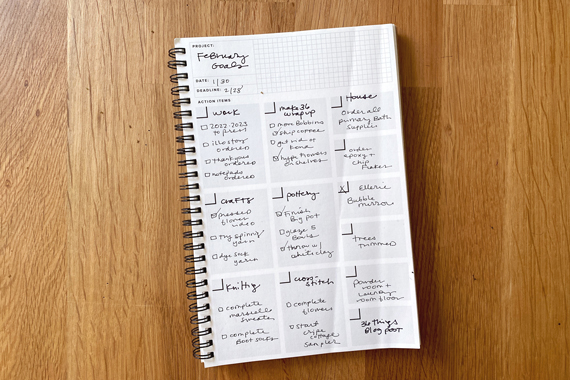 PROJECT:
February
Goals
DATE: 1/30
DEADLINE: 2/28
ACTION ITEMS
Work
2022-2023
to press
ordered
thank yous
ordered
notepads
ordered
make 36
wrap up
more Bobbins
ship coffee
get rid of
hype flowers
on shelves
House
Order all
primary Bath
supplies
order
epoxy +
chip
flakes
crafts
pressed
flower
video
Try Spinning
yarn
dye sock
yarn
pottery
Finish
Big pot
glaze 5
Bowls
throw w/
white clay
Ellerie
Bubble
mirror
Trees
Trimmed
Knitting
complete
marseille
sweater
complete
Boot socks
cross-
stitch
complete
flowers
start
cottage
Sampler
Powder
room +
laundry
room floor
36 things
Blog post